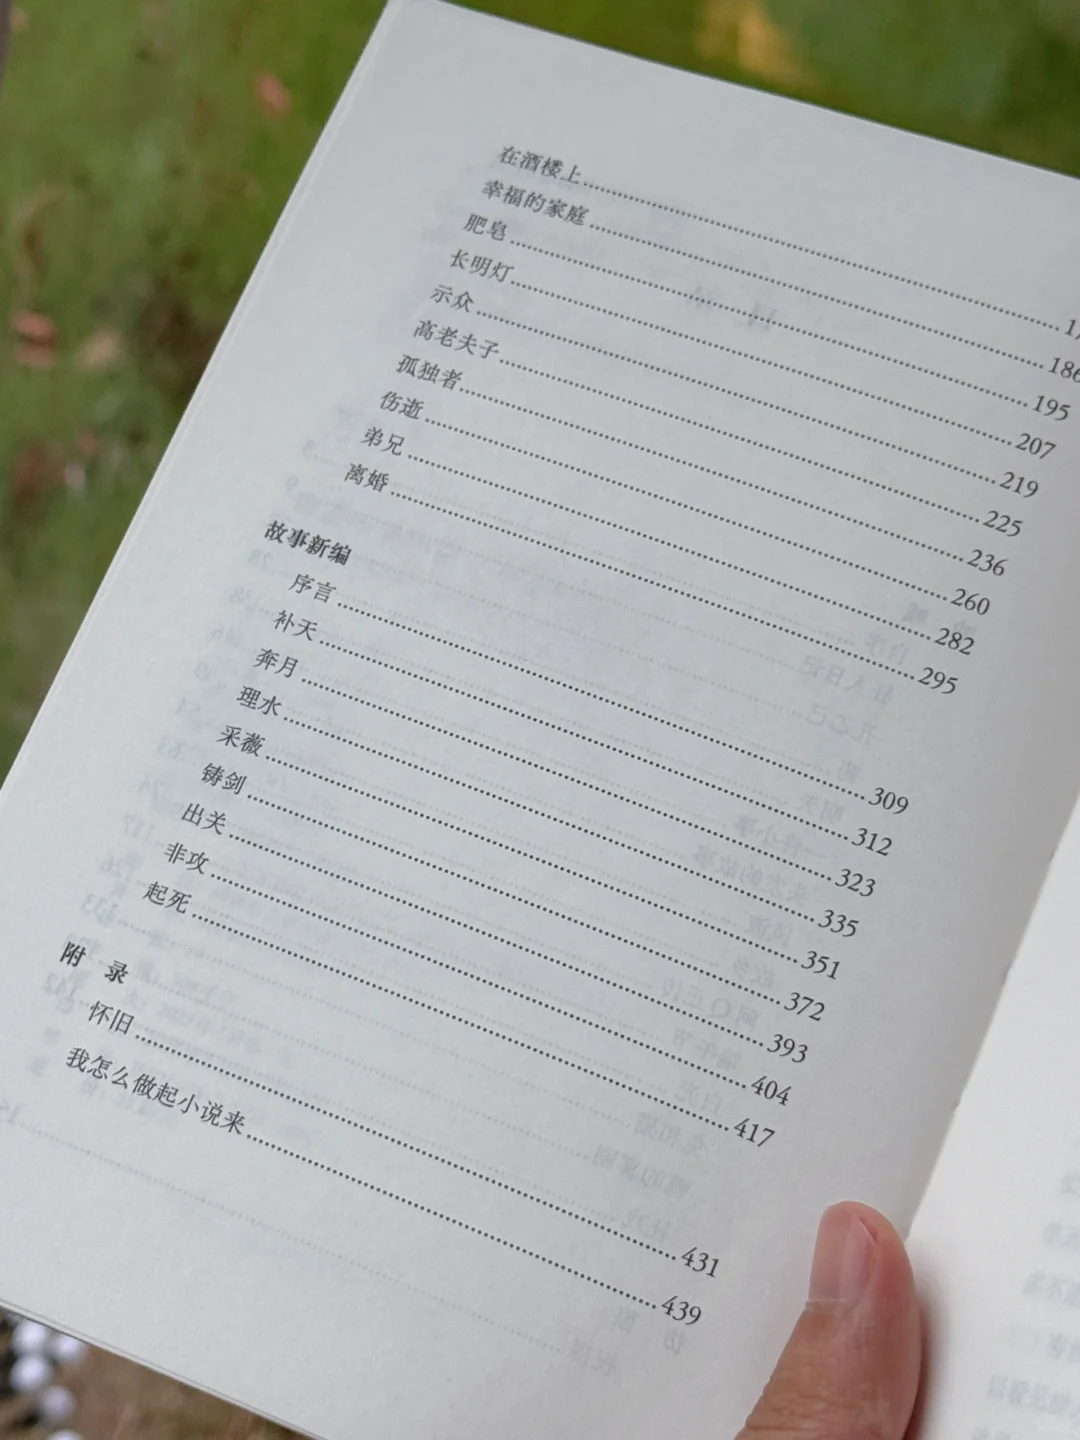 在酒楼上
幸福的家庭 186
肥皂 195
长明灯 207
示众 219
高老夫子 225
孤独者 236
伤逝 260
弟兄 282
离婚 295
故事新编
序言 309
补天 312
奔月 323
理水 335
采薇 351
铸剑 372
出关 393
非攻 404
起死 417
附 录
怀旧 431
我怎么做起小说来 439